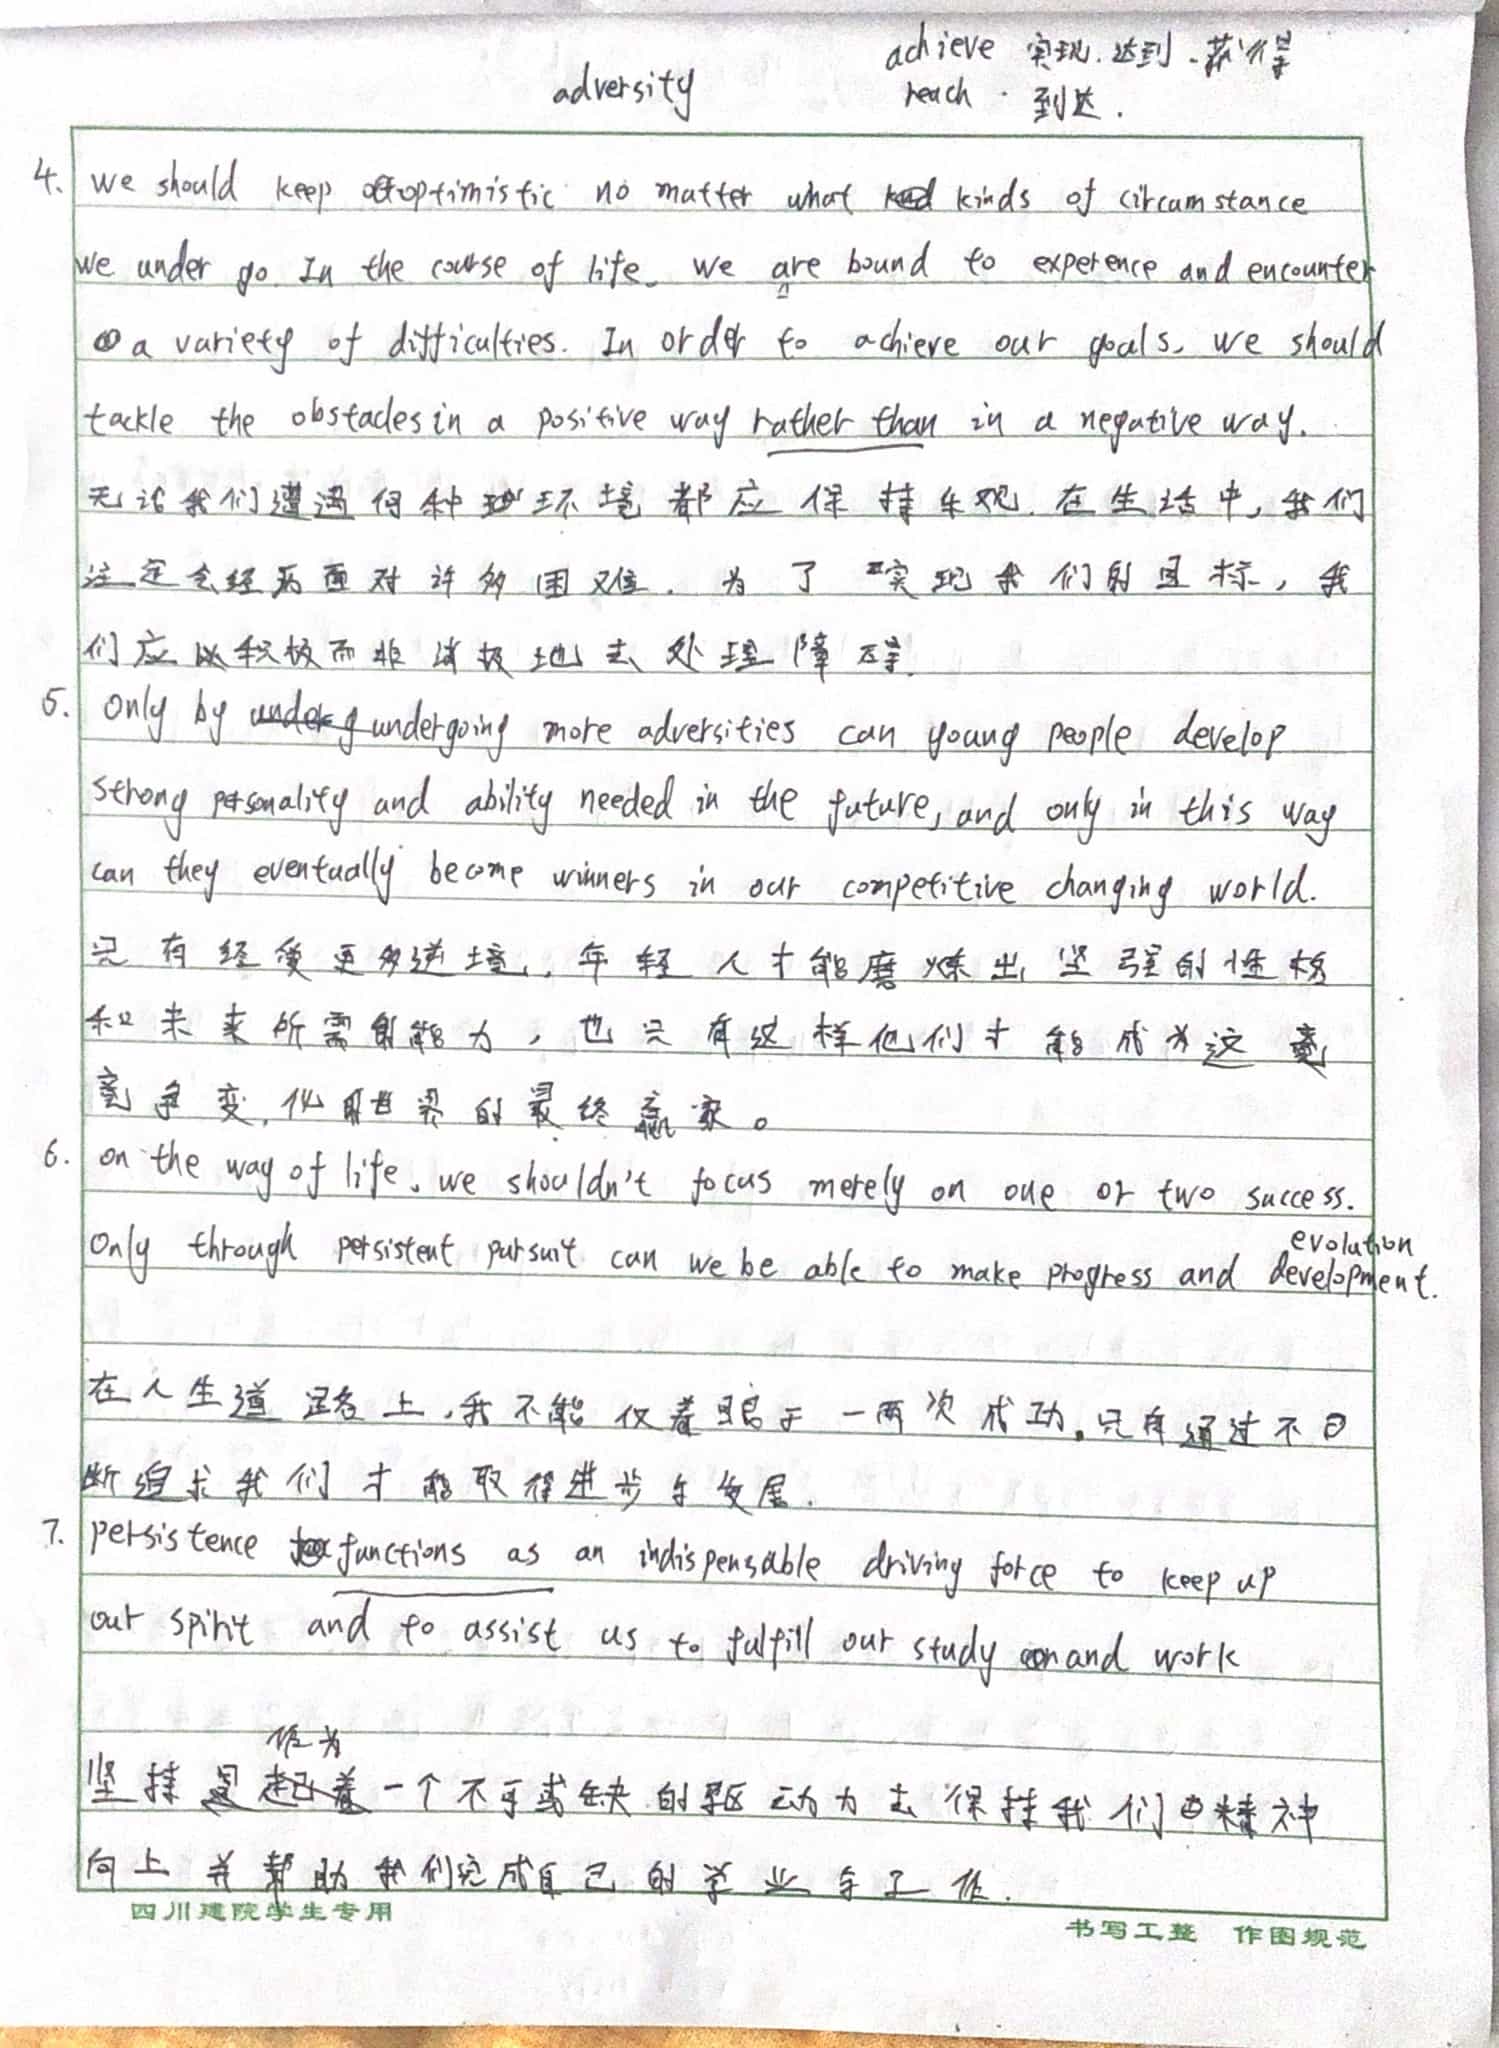 achieve 实现.达到.获得
adversity
reach . 到达.
4. we should keep optimistic no matter what kinds of circumstance
we under go. In the course of life, we are bound to experence and encounter
a variety of difficulties. In order to achieve our goals, we should
tackle the obstacles in a positive way rather than in a negative way.
无论我们遭遇何种环境都应保持乐观.在生活中,我们
注定会经历面对许多困难.为了实现我们的目标,我
们应以积极而非消极地去处理障碍.
5. only by undergoing more adversities can young people develop
strong personality and ability needed in the future, and only in this way
can they eventually become winners in our competitive changing world.
只有经受更多逆境,年轻人才能磨炼出坚强的性格
和未来所需的能力,也只有这样他们才能成为这竞
竞争变化的世界的最终赢家。
6. on the way of life, we shouldn't focus merely on one or two success.
evolution
only through persistent pursuit can we be able to make progress and development.
在人生道路上,我不能仅着眼于一两次成功.只有通过不
断追求我们才能取得进步与发展.
7. persistence functions as an indispensable driving force to keep up
our spirit and to assist us to fulfill our study and work
作为
坚持一个不可或缺的驱动力去保持我们的精神
向上并帮助我们完成自己的学业与工作.
四川建院学生专用
书写工整 作图规范